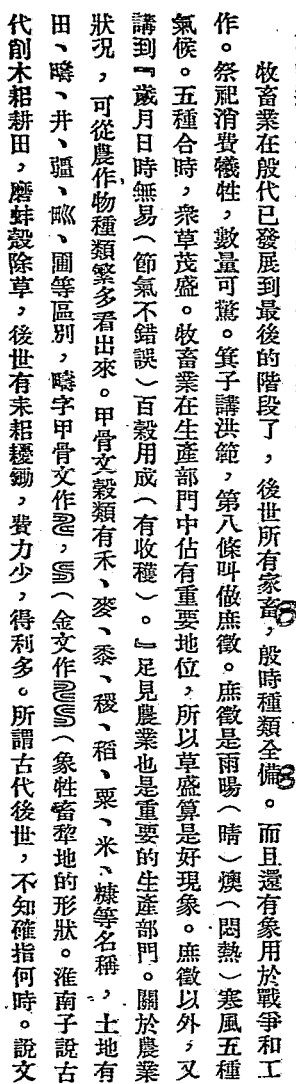 牧畜業在殷代已發展到最後的階段了，後世所有家畜，殷時種類全備。而且還有象用於戰爭和工
作。祭祀消費犧牲，數量可驚。箕子講洪範，第八條叫做庶徵。庶徵是雨暘（晴）燠（悶熱）寒風五種
氣候。五種合時，衆草茂盛。牧畜業在生產部門中佔有重要地位，所以草盛算是好現象。庶徵以外，又
講到『歲月日時無易（節氣不錯誤）百穀用成（有收穫）。』足見農業也是重要的生產部門。關於農業
狀況，可從農作物種類繁多看出來。甲骨文穀類有禾、麥、黍、稷、稻、粟、米、糠等名稱，土地有
田、疇、井、疆、甽、圃等區別，疇字甲骨文作，（金文作（象牲畜犂地的形狀。淮南子說古
代剡木耜耕田，磨蚌殼除草，後世有耒耜耰鋤，費力少，得利多。所謂古代後世，不知確指何時。說文